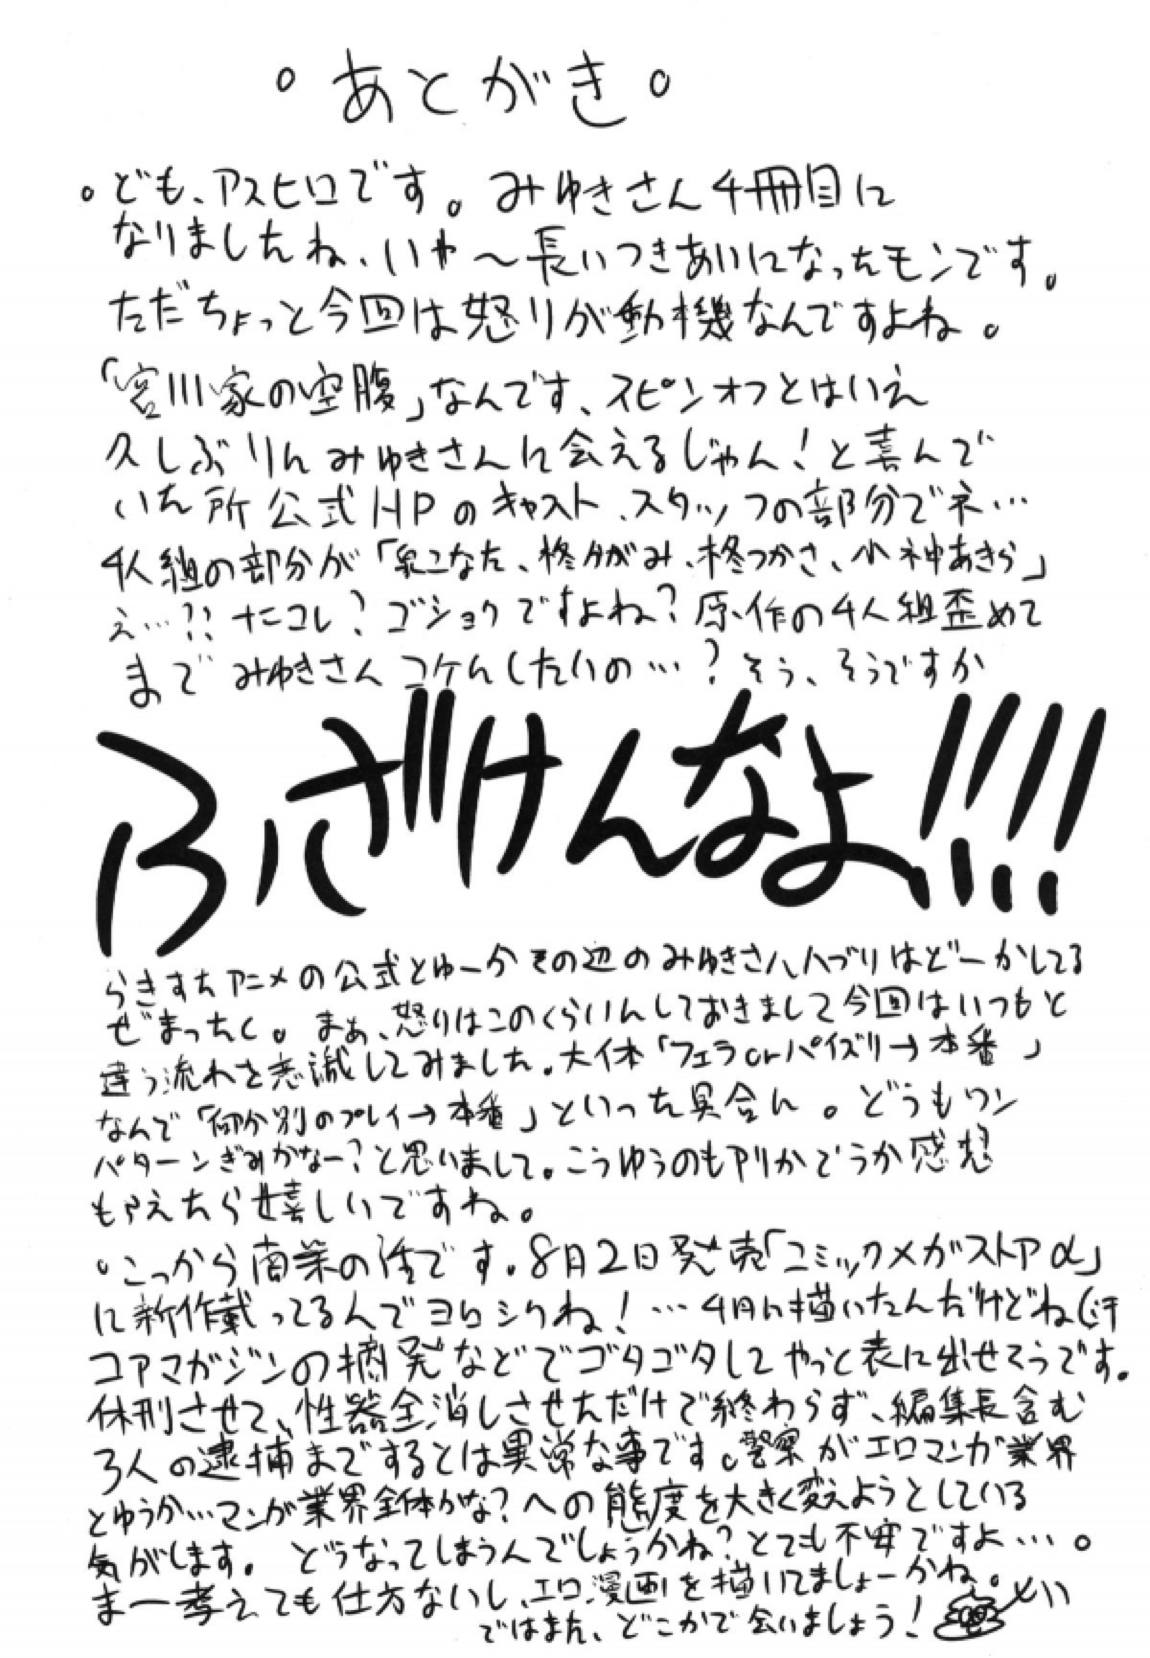 。あとがき。
。ども、アスヒロです。みゆきさん4冊目に
なりましたね、いや〜長いつきあいになったモンです。
ただちょっと今回は怒りが動機なんですよね。
「宮川家の空腹」なんです、スピンオフとはいえ
久しぶりにみゆきさんに会えるじゃん!と喜んで
いた所公式HPのキャスト、スタッフの部分でネ…
4人組の部分が「泉こなた、柊かがみ、柊つかさ、小神あきら」
え…?? ナニコレ?ゴショクですよね?原作の4人組歪めて
までみゆきさんコケにしたいの…?そう、そうですか
ふざけんなよ!!!!
らきすたアニメの公式とゆーかその辺のみゆきさんハブリはどーかしてる
ぜまったく。まぁ、怒りはこのくらいにしておきまして今回はいつもと
違う流れを意識してみました。大体「フェラorパイズリ→本番」
なんで「何か別のプレイ→本番」といった具合に。どうもワン
パターンぎみかなー?と思いまして。こうゆうのもアリかどうか感想
もらえたら嬉しいですね。
・こっから商業の話です。8月2日発売「コミックメガストアα」
に新作載ってるんでヨロシクね!…4月に描いたんだけどね(汗
コアマガジンの摘発などでゴタゴタしてやっと表に出せそうです。
休刊させて、性器全消しさせただけで終わらず、編集長含む
3人の逮捕までするとは異常な事です。警察がエロマンガ業界
とゆうか…マンガ業界全体かな?への態度を大きく変えようとしている
気がします。どうなってしまうんでしょうかね?とても不安ですよ…。
まー考えても仕方ないし、エロ漫画を描いてましょーかね。
ではまた、どこかで会いましょう!